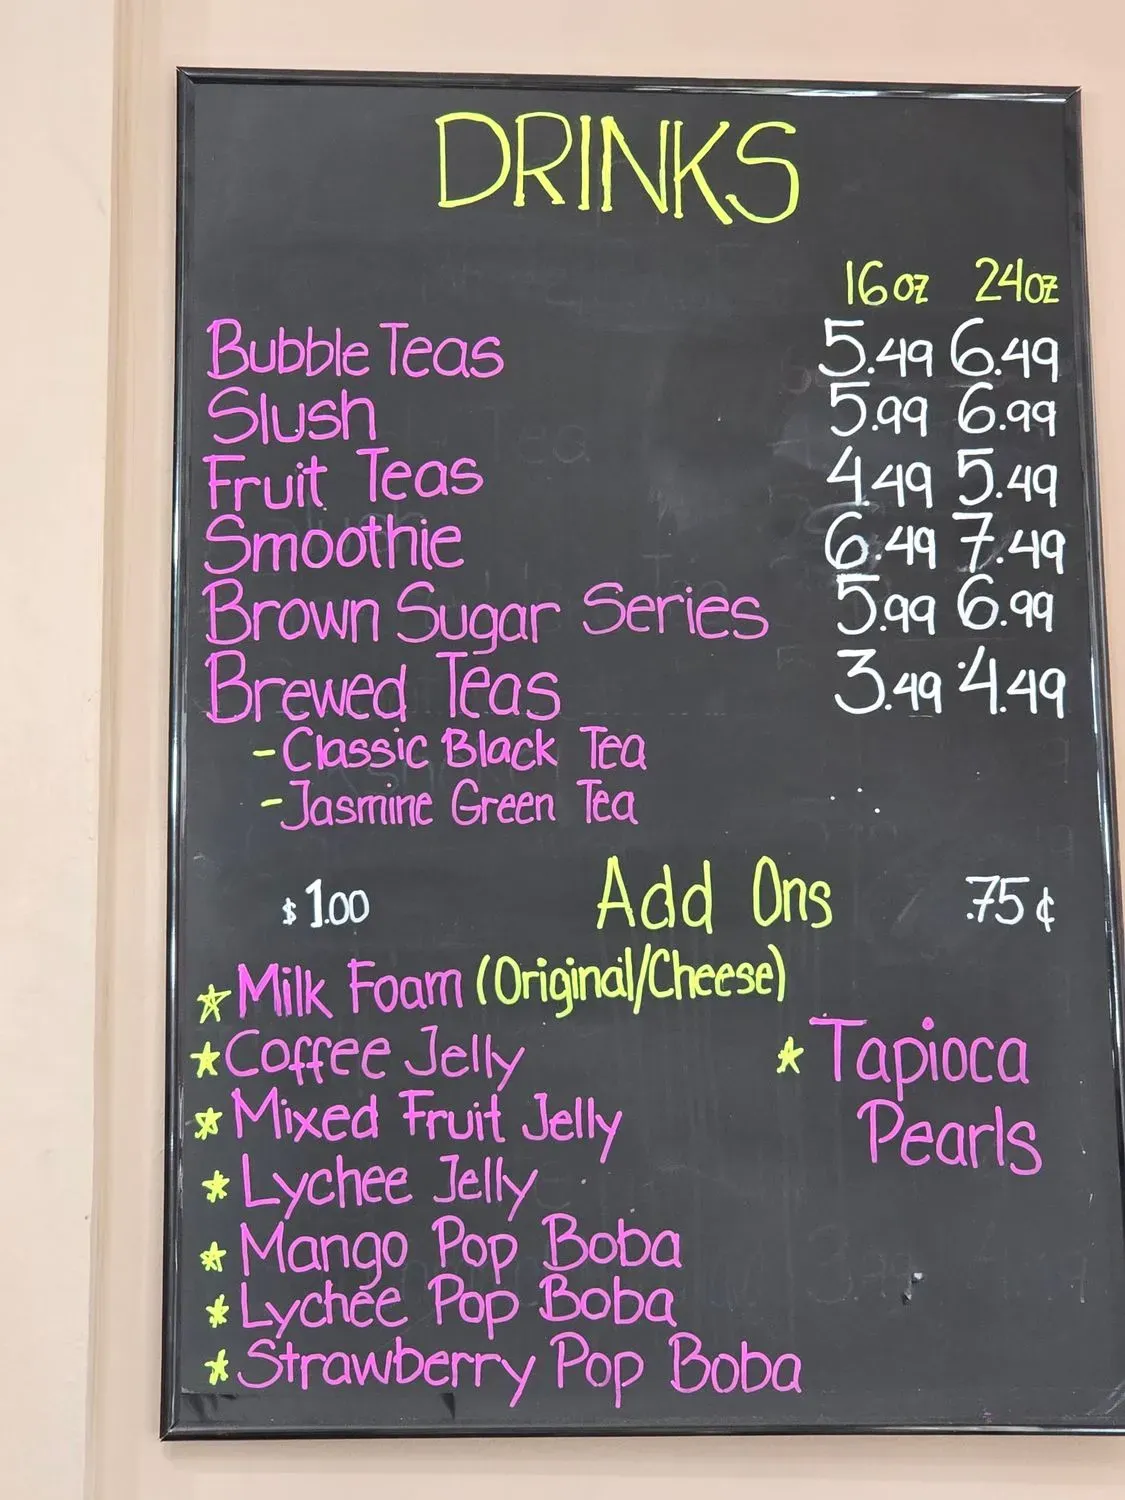 DRINKS
16oz 24oz
Bubble Teas 5.49 6.49
Slush 5.99 6.99
Fruit Teas 4.49 5.49
Smoothie 6.49 7.49
Brown Sugar Series 5.99 6.99
Brewed Teas 3.49 4.49
-Classic Black Tea
-Jasmine Green Tea
$1.00 Add Ons .75¢
☆ Milk Foam (Original/Cheese)
☆ Coffee Jelly ☆ Tapioca
☆ Mixed Fruit Jelly Pearls
☆ Lychee Jelly
☆ Mango Pop Boba
☆ Lychee Pop Boba
☆ Strawberry Pop Boba